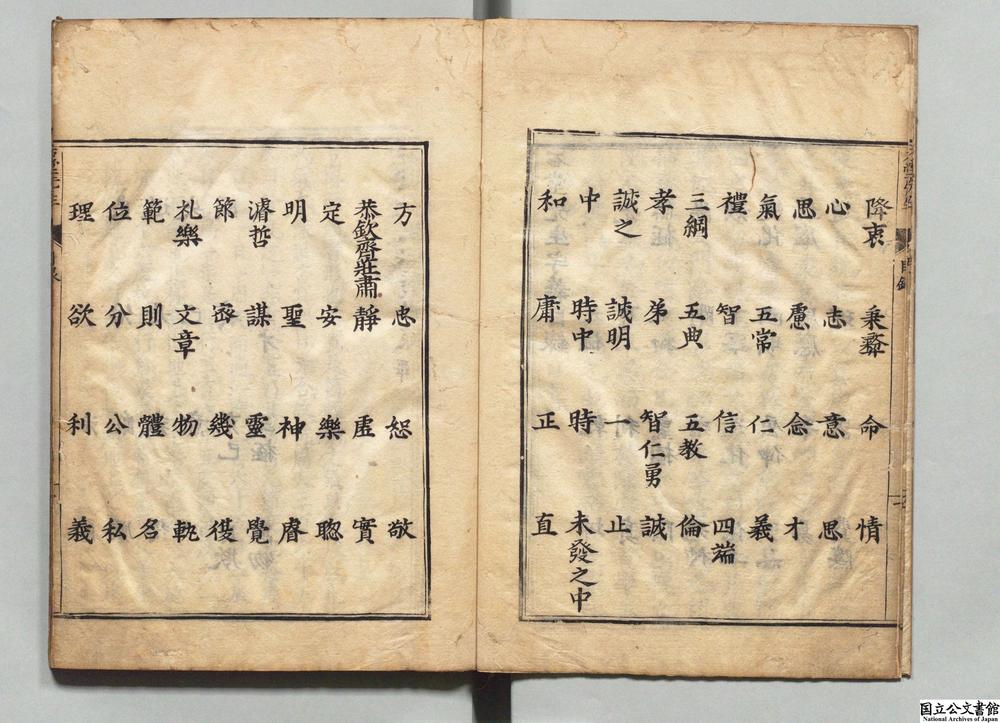 降衷 秉彛 命 情
心 志 意 思
思 慮 念 才
氣 五常 仁 義
禮 智 信 四端
三綱 五典 五教 倫
孝 弟 智仁勇 誠
誠之 誠明 一 止
中 時中 時 未發之中
和 庸 正 直
方 忠 恕 敬
恭欽齋莊肅 靜 虛 實
定 安 樂 聰
明 聖 神 睿
濬哲 謀 靈 覺
節 密 幾 復
礼樂 文章 物 軌
範 則 體 名
位 分 公 私
理 欲 利 義
国立公文書館
National Archives of Japan